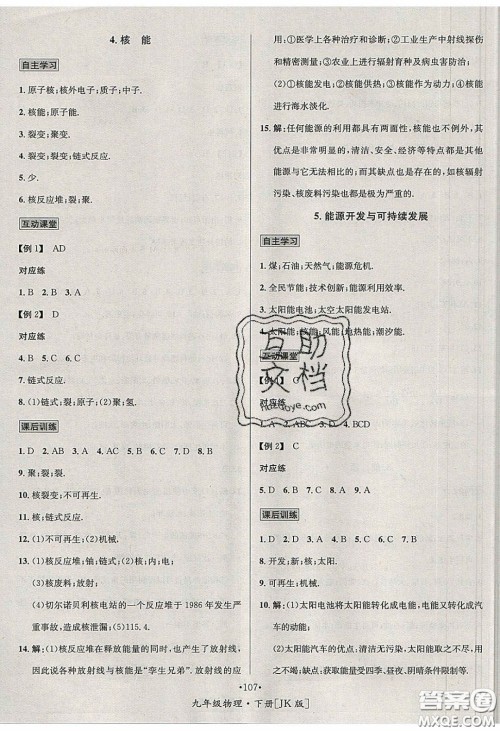 4. 核 能
自主学习
1. 原子核;核外电子;质子;中子.
2. 核能;原子能.
3. 裂变;聚变.
4. 裂变;裂变;链式反应.
5. 少.
6. 核反应堆;裂;聚.
互动课堂
【例1】 AD
对应练
1. B 2. B 3. A
【例2】 D
对应练
4. B 5. C 6. D
7. 链式反应.
8. (1)链式;裂;原子;(2)聚;氢.
课后训练
1. D 2. AB 3. A 4. AC 5. AC 6. D 7. D 8. B
9. 聚;裂;裂.
10. 核变;不可再生.
11. 核;链式反应.
12. (1)不可再生;(2)机械.
13. (1)核反应堆;铀;链式;(2)核;内;电;
(3)核废料;放射;
(4)切尔诺贝利核电站的一个反应堆于1986年发生严
重事故,造成核泄漏;(5)115.4.
14. 解:核反应堆在释放能量的同时,也产生了放射线,
因此说各种放射线与核能是“孪生兄弟”.放射线的
用途:①医学上各种治疗和诊断;②工业生产中射线探伤
和精密测量;③农业上进行辐射育种及病虫害防治;
(2)①核能发电;②核能供热;③核能作为动力;④核能进
行海水淡化.
15. 解:任何能源的利用都具有两面性,核能也不例外,其
优点是非常明显的,清洁、安全、经济等特点都是其
他能源与它无法相比的;而其缺点也是存在的,如核辐射
污染、核废料污染也是极为严重的.
5. 能源开发与可持续发展
自主学习
1. 煤;石油;天然气;能源危机.
2. 全民节能;技术创新;能源利用率.
3. 太阳能电池;太空太阳能发电站.
4. 太阳能;核能;风能;地热能;潮汐能.
互动课堂
【例1】 C
对应练
1. A 2. ABC 3. D 4. BCD
【例2】 C
对应练
5. D 6. B 7. B 8. B 9. A
课后训练
1. D 2. D 3. A 4. C 5. A 6. C 7. B
8. 开发;新;核;太阳.
9. 可再生;机械.
10. 解:(1)太阳电池将太阳能转化成电能,电能又转化成汽
车的动能;
(2)太阳能汽车的优点是无污染,能源取之不尽、用之
不竭.缺点是:获取能量受四季、昼夜、阴晴等影响.
·107·
九年级物理·下册[JK版]
互助
文档
答案圈
MXQE.COM